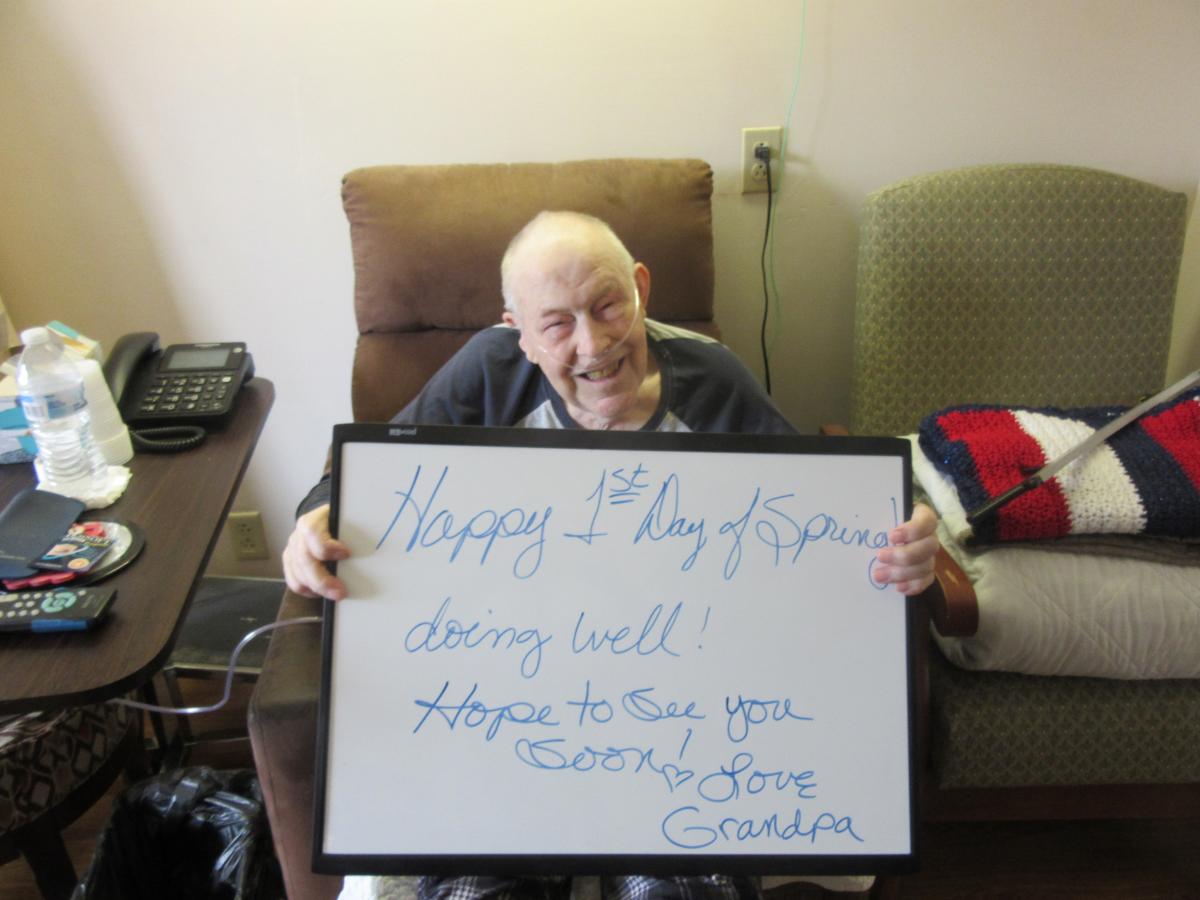 Happy 1st Day of Spring!
doing well!
Hope to See you
Soon! ♡ Love
Grandpa